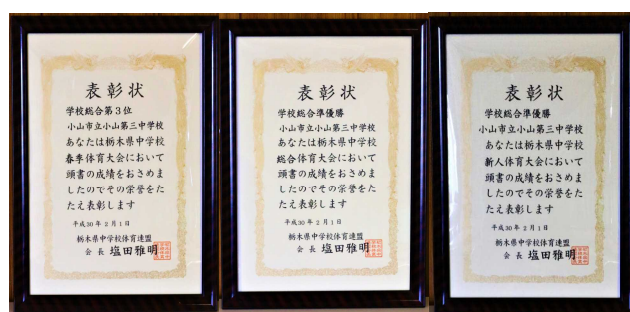 表彰状
学校総合第3位
小山市立小山第三中学校
あなたは栃木県中学校
春季体育大会において
頭書の成績をおさめま
したのでその栄誉をた
たえ表彰します
平成30年2月1日
栃木県中学校体育連盟
会長 塩田雅明
表彰状
学校総合準優勝
小山市立小山第三中学校
あなたは栃木県中学校
総合体育大会において
頭書の成績をおさめま
したのでその栄誉をた
たえ表彰します
平成30年2月1日
栃木県中学校体育連盟
会長 塩田雅明
表彰状
学校総合準優勝
小山市立小山第三中学校
あなたは栃木県中学校
新人体育大会において
頭書の成績をおさめま
したのでその栄誉をた
たえ表彰します
平成30年2月1日
栃木県中学校体育連盟
会長 塩田雅明